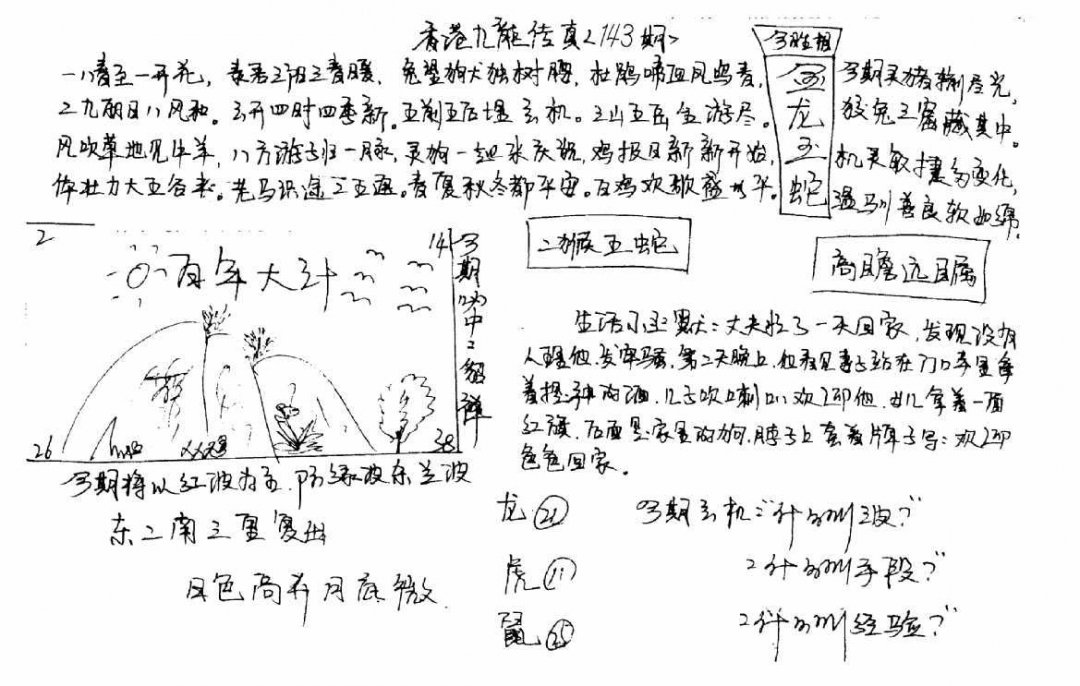 香港九龙传真<143期>
一八春至一开花，春君三阳三春暖，兔望狗犬独树腰，杜鹃啼血凤鸣春，
二九雨日八风和。云开四时四季新。五前五后埋玄机。三山五岳全游尽。
风吹草地见牛羊，八方游子归一脉，灵狗一起来庆祝，鸡报日新新开始，
体壮力大五谷来。老马识途二五通。春夏秋冬都平安。百鸡欢歌盛太平。
今期相
金龙玉蛇
今期灵猪捌
狡兔三窟藏其中。
机灵敏捷多变化，
温驯善良软如绵。
二猴五蛇
高瞻远瞩
2
14
百年大计
26
38
今期必中：貂禅
今期将以红波为主，防绿波东兰波
东二南三里复出
日色高升月底微
生活小幽默：丈夫忙了一天回家，发现没有
人理他，发牢骚，第二天晚上，他看见妻子站在门口手里拿
着提神的酒，儿子吹喇叭欢迎他，女儿拿着一面
红旗，后面是家里的狗，脖子上套着牌子写：欢迎
色色回家。
龙 21
虎 11
鼠 25
今期玄机：“什么叫
2什么叫手段？”
2什么叫经验？”